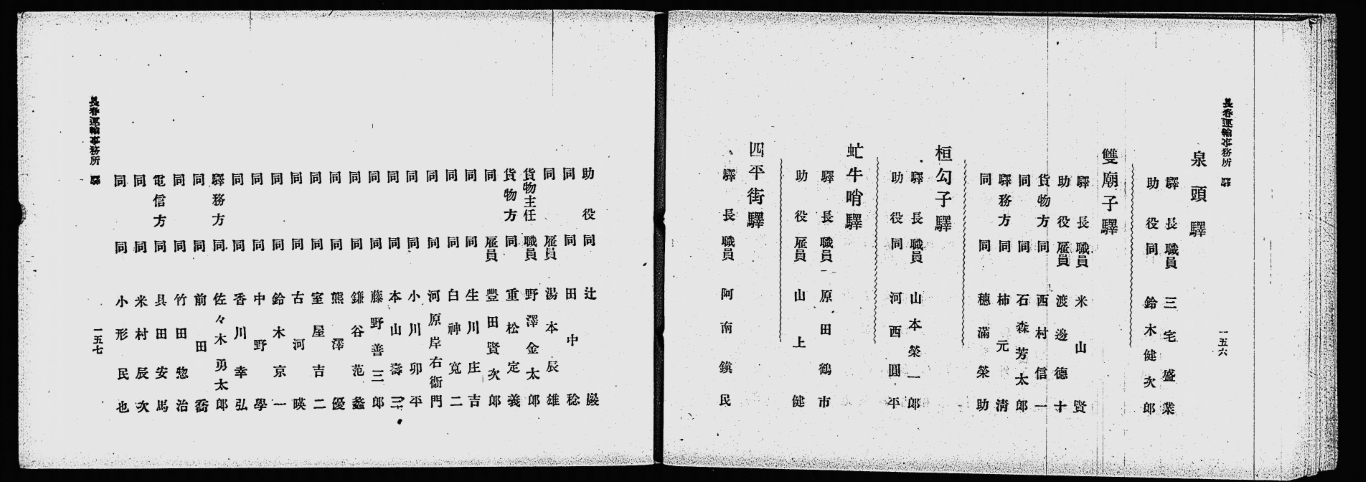 長春運輸事務所 驛
泉頭驛
驛長 職員 三宅盛業
助役 同 鈴木健次郎
雙廟子驛
驛長 職員 米山賢
助役 雇員 渡邊德十
貨物方 同 西村信一
同 同 石森芳太郎
驛務方 同 柿元清
同 同 穗滿榮助
桓勾子驛
驛長 職員 山本榮一郎
助役 同 河西圓平
虻牛哨驛
驛長 職員 原田鶴市
助役 雇員 山上健
四平街驛
驛長 職員 阿南鎭民
一五六
助役 同 辻巖
同 同 田中稔
同 雇員 湯本辰雄
貨物主任 職員 野澤金太郎
貨物方 同 重松定義
同 雇員 豐田賢次郎
同 同 生川庄吉
同 同 白神寬二
同 同 河原岸右衞門
同 同 小川卯平
同 同 本山壽三
同 同 藤野善三郎
同 同 鎌谷範蠡
同 同 熊澤優
同 同 室屋吉二
同 同 古河暎
同 同 鈴木京一
同 同 中野學
同 同 香川幸弘
驛務方 同 佐々木勇太郎
同 同 前田喬
同 同 竹田惣治
電信方 同 具田安馬
同 同 米村辰次
同 同 小形民也
長春運輸事務所 驛
一五七